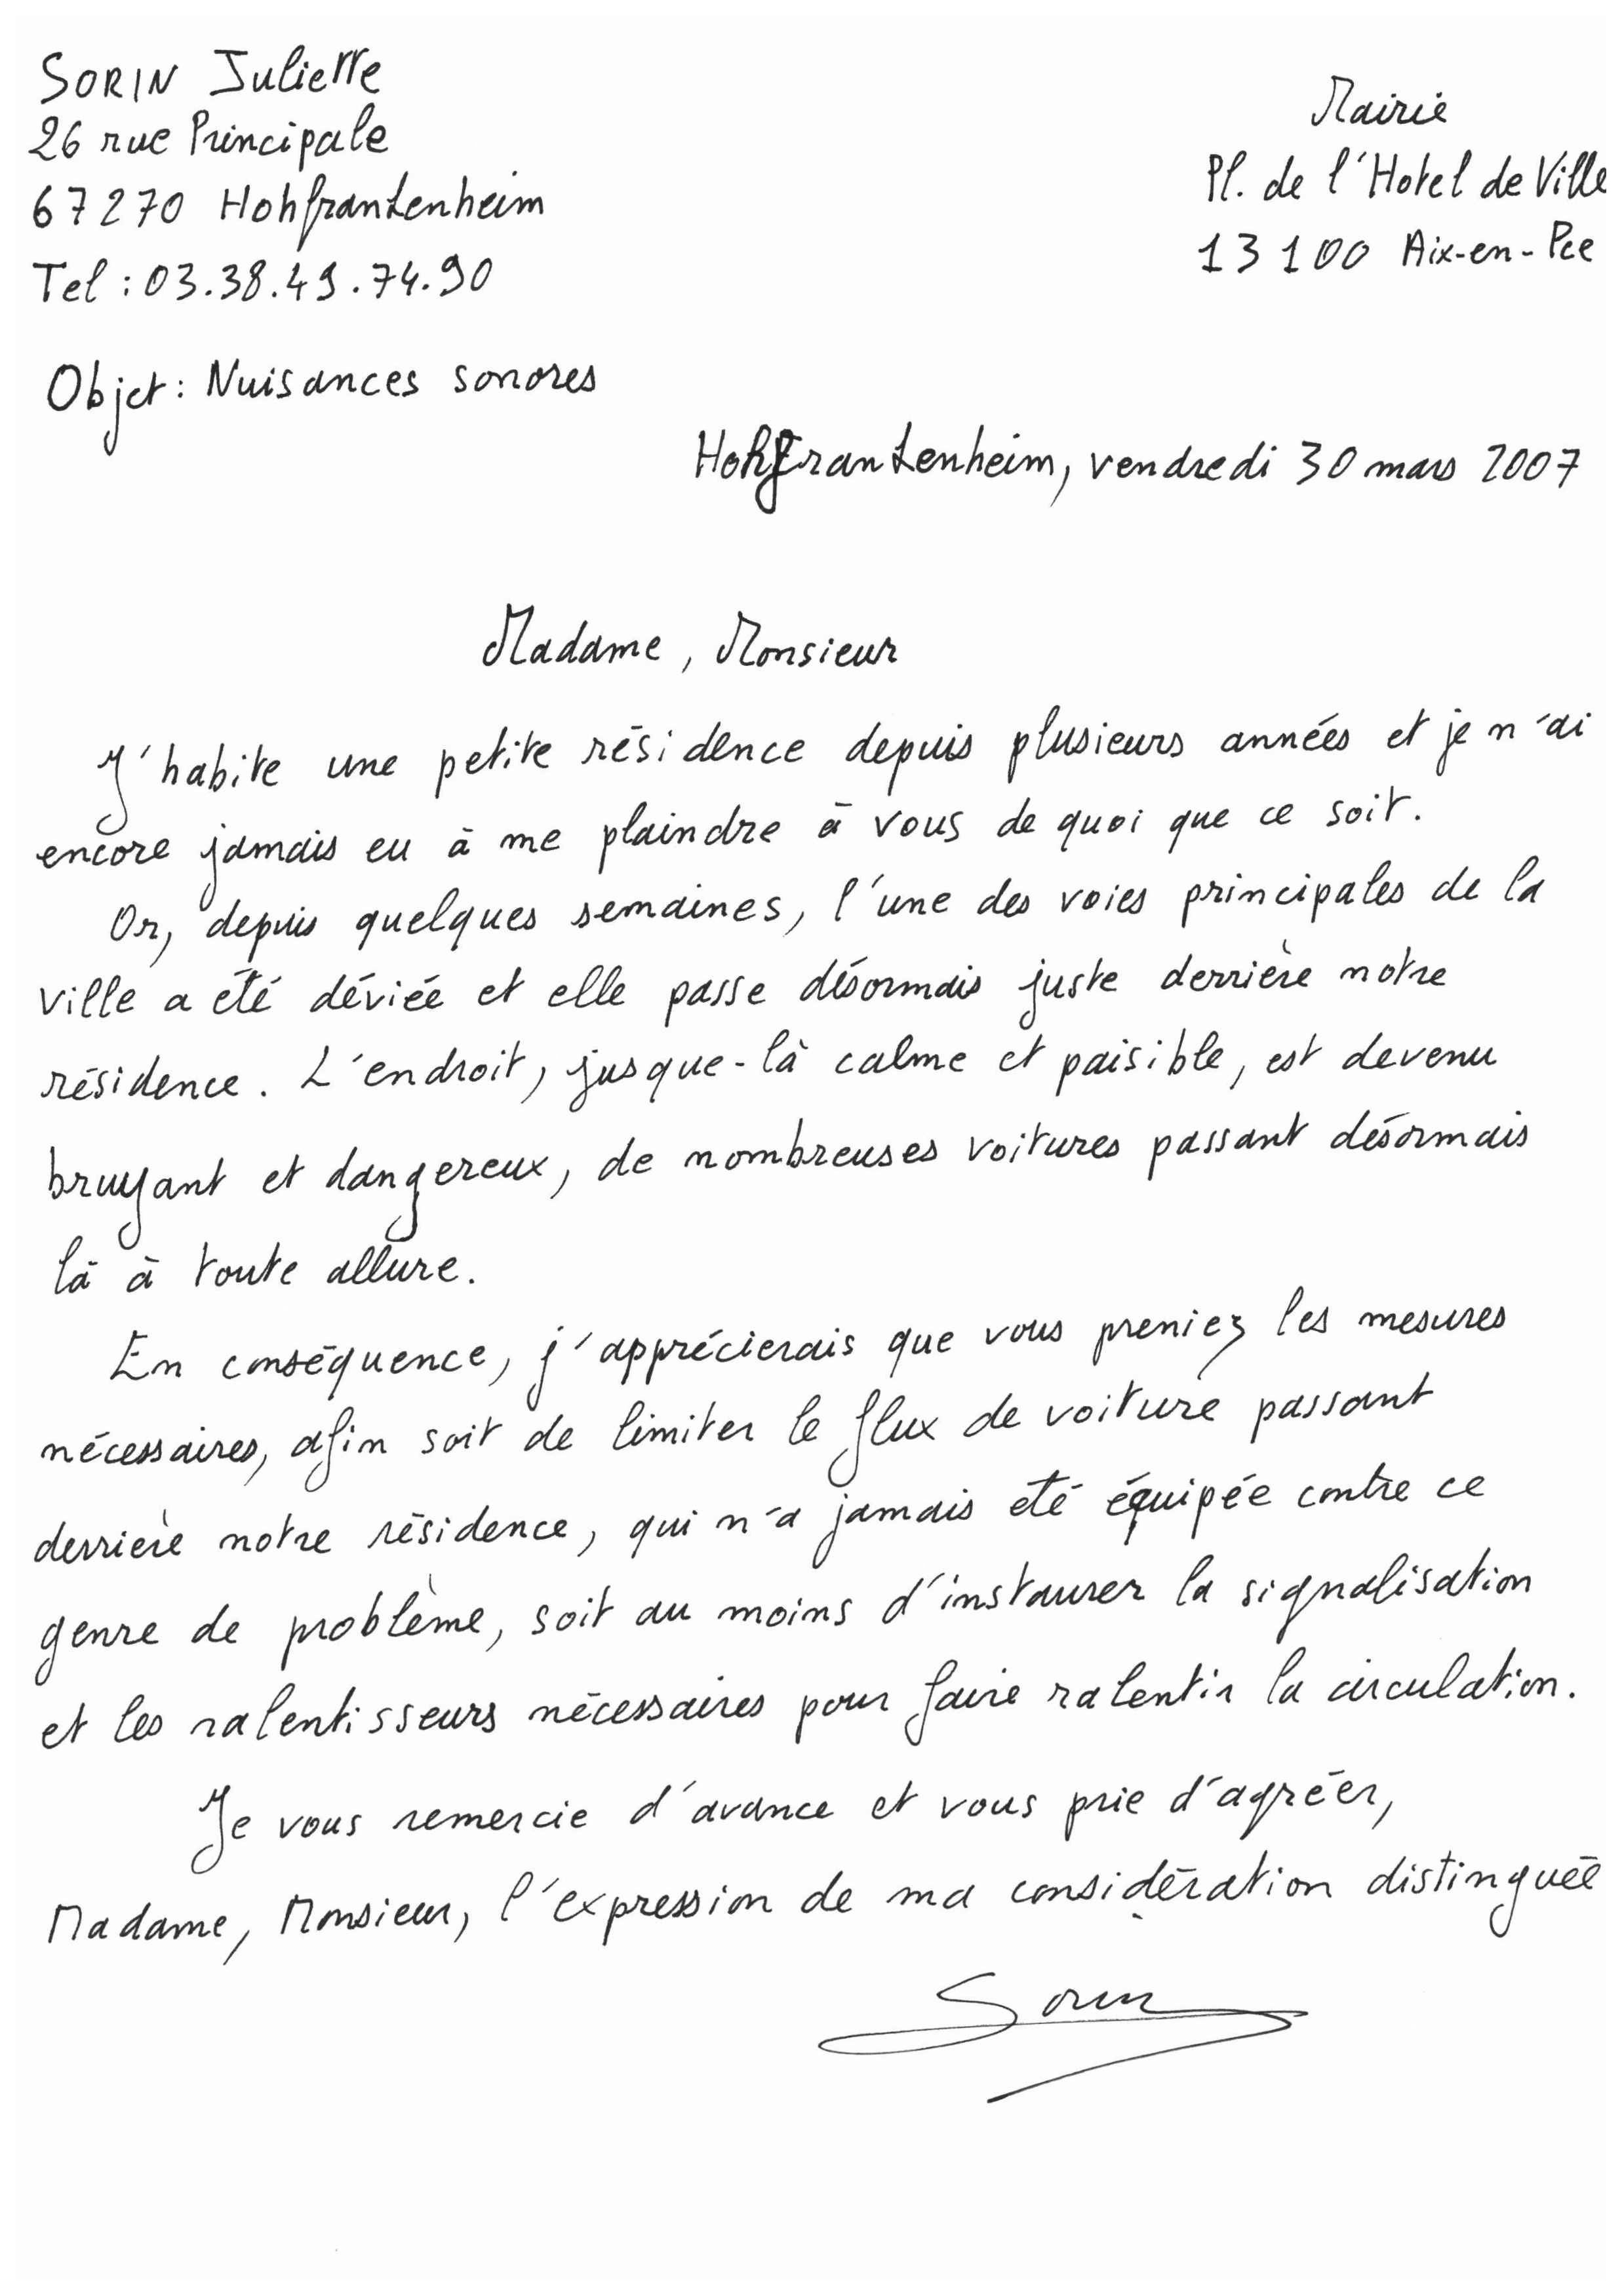 SORIN Juliette
26 rue Principale
67270 Hohfrankenheim
Tel : 03.38.49.74.90
Mairie
Pl. de l'Hotel de Ville
13100 Aix-en-Pce
Objet : Nuisances sonores
Hohfrankenheim, vendredi 30 mars 2007
Madame, Monsieur
J'habite une petite résidence depuis plusieurs années et je n'ai
encore jamais eu à me plaindre à vous de quoi que ce soit.
Or, depuis quelques semaines, l'une des voies principales de la
ville a été déviée et elle passe désormais juste derrière notre
résidence. L'endroit, jusque-là calme et paisible, est devenu
bruyant et dangereux, de nombreuses voitures passant désormais
là à toute allure.
En conséquence, j'apprécierais que vous preniez les mesures
nécessaires, afin soit de limiter le flux de voiture passant
derrière notre résidence, qui n'a jamais été équipée contre ce
genre de problème, soit au moins d'instaurer la signalisation
et les ralentisseurs nécessaires pour faire ralentir la circulation.
Je vous remercie d'avance et vous prie d'agréer,
Madame, Monsieur, l'expression de ma considération distinguée
Sorin